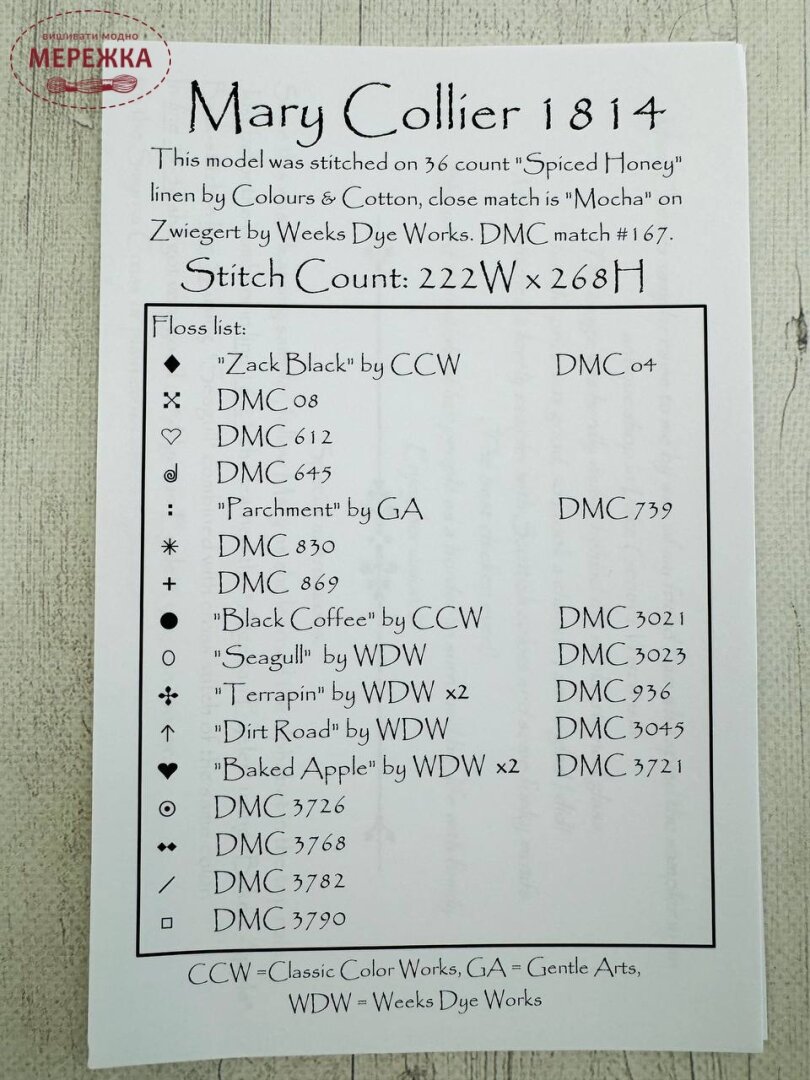 вишивати модно
МЕРЕЖКА
Mary Collier 1814
This model was stitched on 36 count "Spiced Honey"
linen by Colours & Cotton, close match is "Mocha" on
Zwiegert by Weeks Dye Works. DMC match #167.
Stitch Count: 222W x 268H
Floss list:
"Zack Black" by CCW DMC 04
DMC 08
DMC 612
DMC 645
"Parchment" by GA DMC 739
DMC 830
DMC 869
"Black Coffee" by CCW DMC 3021
"Seagull" by WDW DMC 3023
"Terrapin" by WDW x2 DMC 936
"Dirt Road" by WDW DMC 3045
"Baked Apple" by WDW x2 DMC 3721
DMC 3726
DMC 3768
DMC 3782
DMC 3790
CCW =Classic Color Works, GA = Gentle Arts,
WDW = Weeks Dye Works